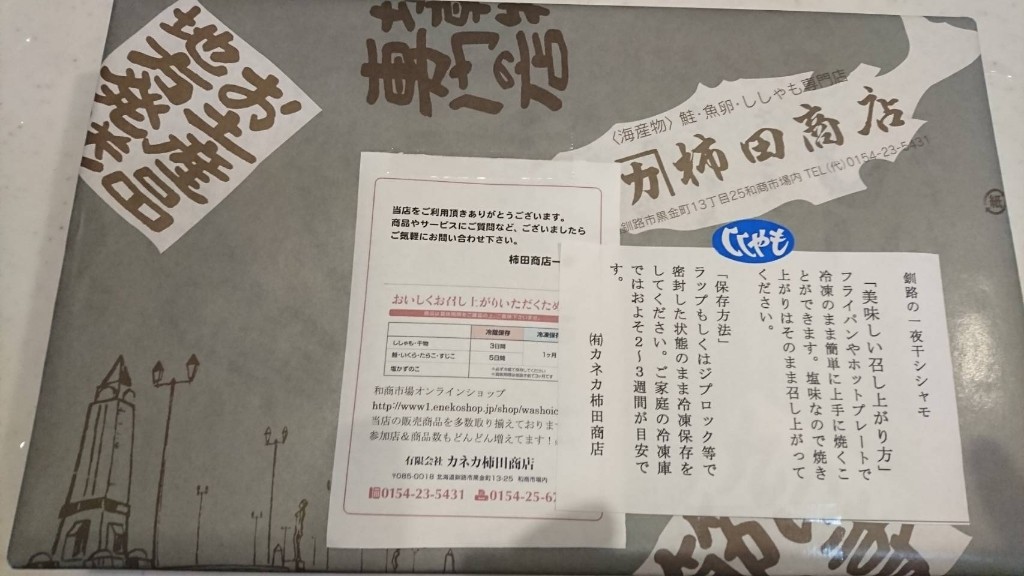 お土産品
地方発送
専門の店
〈海産物〉鮭・魚卵・ししゃも専門店
カ 柿田商店
釧路市黒金町13丁目25和商市場内 TEL(代)0154-23-5431
紙
当店をご利用頂きありがとうございます。
商品やサービスにご質問など、ございましたら
ご気軽にお問い合わせ下さい。
柿田商店一
おいしくお召し上がりいただくため
冷蔵保存 冷凍保存
ししゃも・干物 3日間
鮭・いくら・たらこ・すじこ 5日間 1ヶ月
塩かずのこ
和商市場オンラインショップ
http://www1.enekoshop.jp/shop/washoic
当店の販売商品を多数取り揃えておりま
参加店&商品数もどんどん増えてます!
有限会社 カネカ柿田商店
〒085-0018 北海道釧路市黒金町13-25 和商市場内
0154-23-5431 0154-25-62
ししゃも
釧路の一夜干シシャモ
「美味しい召し上がり方」
フライパンやホットプレートで
冷凍のまま簡単に上手に焼くこ
とができます。塩味なので焼き
上がりはそのまま召し上がって
ください。
「保存方法」
ラップもしくはジプロック等で
密封した状態のまま冷凍保存を
してください。ご家庭の冷凍庫
ではおよそ2~3週間が目安で
す。
㈲カネカ柿田商店